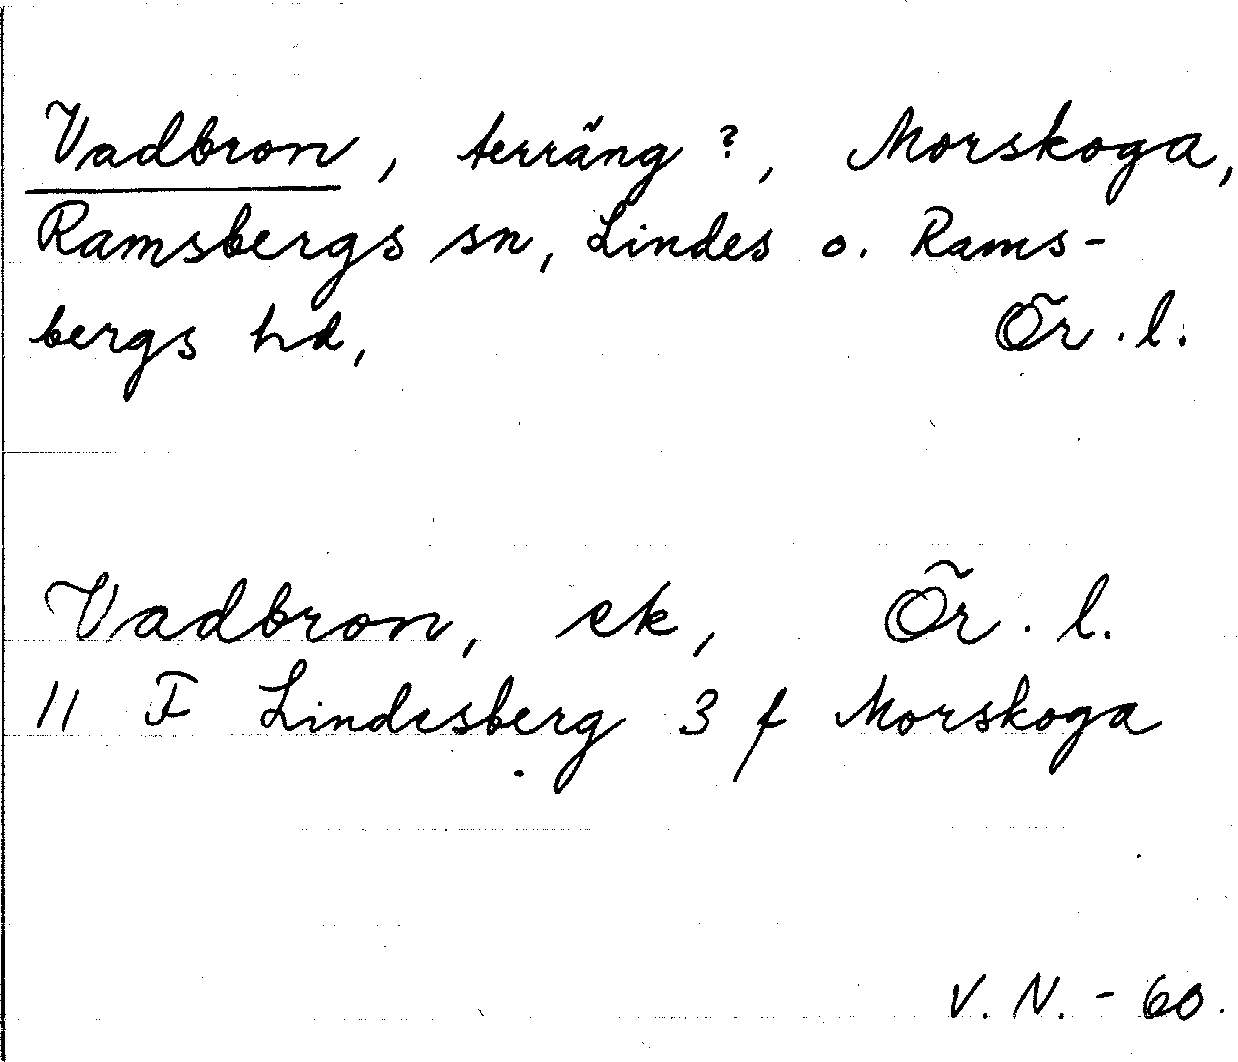 Vadbron, terräng?, Morskoga,
Ramsbergs sn, Lindes o. Rams-
bergs hd, Ör. l.
Vadbron, ek, Ör. l.
11 F Lindesberg 3 f Morskoga
V. N. - 60.